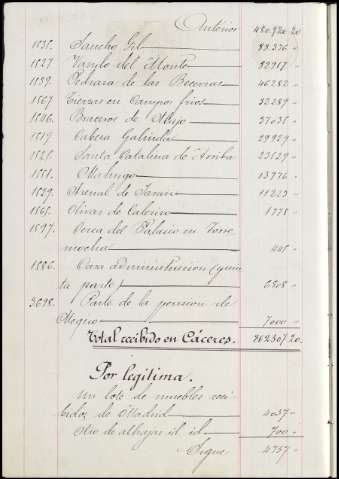 Anterior 480.920.20
1535. Sancho Gil 83.376 -
1527. Varillo del Monte 32967 -
1539. Pedrara de las Becerras 46282 -
1567 Tierras en Campos frios 33289 -
1586. Braceros de 37035 -
1519. Cabeza Gabindo 29929 -
1525. Santa Catalina de Arriba 23529 -
1551. 13976 -
1529. Arenal de 11223 -
1565. Olivar de Cabrera 1775 -
1597. Cerca del Palacio en Torre
mocha 445 -
1606. Casa administracion (quin
ta parte) 6508 -
3698. Parte de la pension de
Mogro 7000 -
Total recibido en Cáceres. 862.507 20.
Por legitima.
Un lote de muebles reci
bidos de Madrid 4037 -
Otro de alhajas id. id. 700 -
Sigue 4737 -